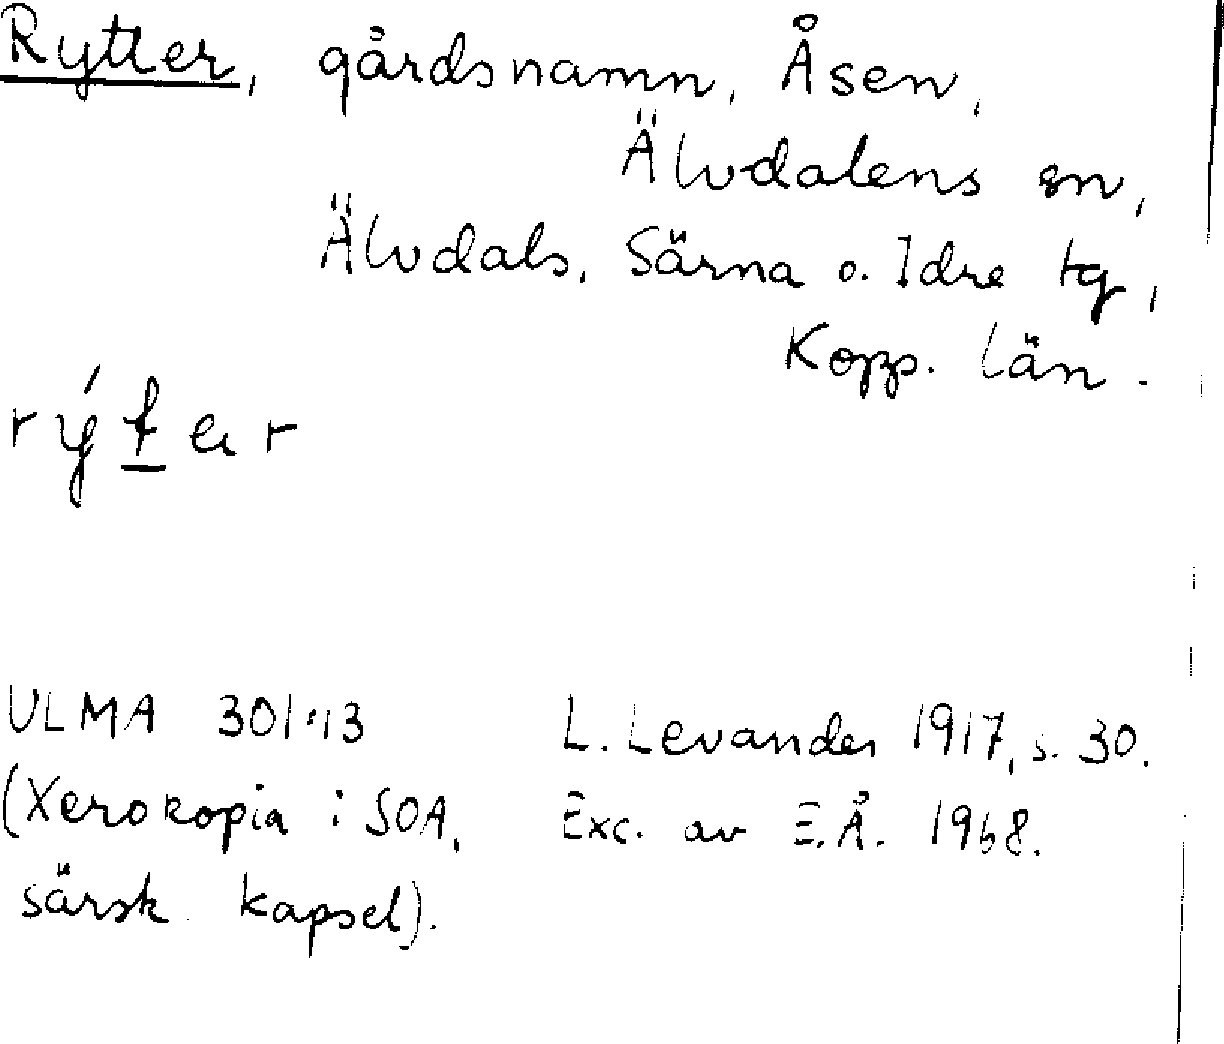 Rytter, gårdsnamn, Åsen,
Älvdalens sn,
Älvdals, Särna o. Idre tg,
Kopp. län.
rýter
ULMA 301:13 L. Levander 1917, s. 30.
(Xerokopia i SOA, Exc. av E.Å. 1968.
särsk. kapsel).